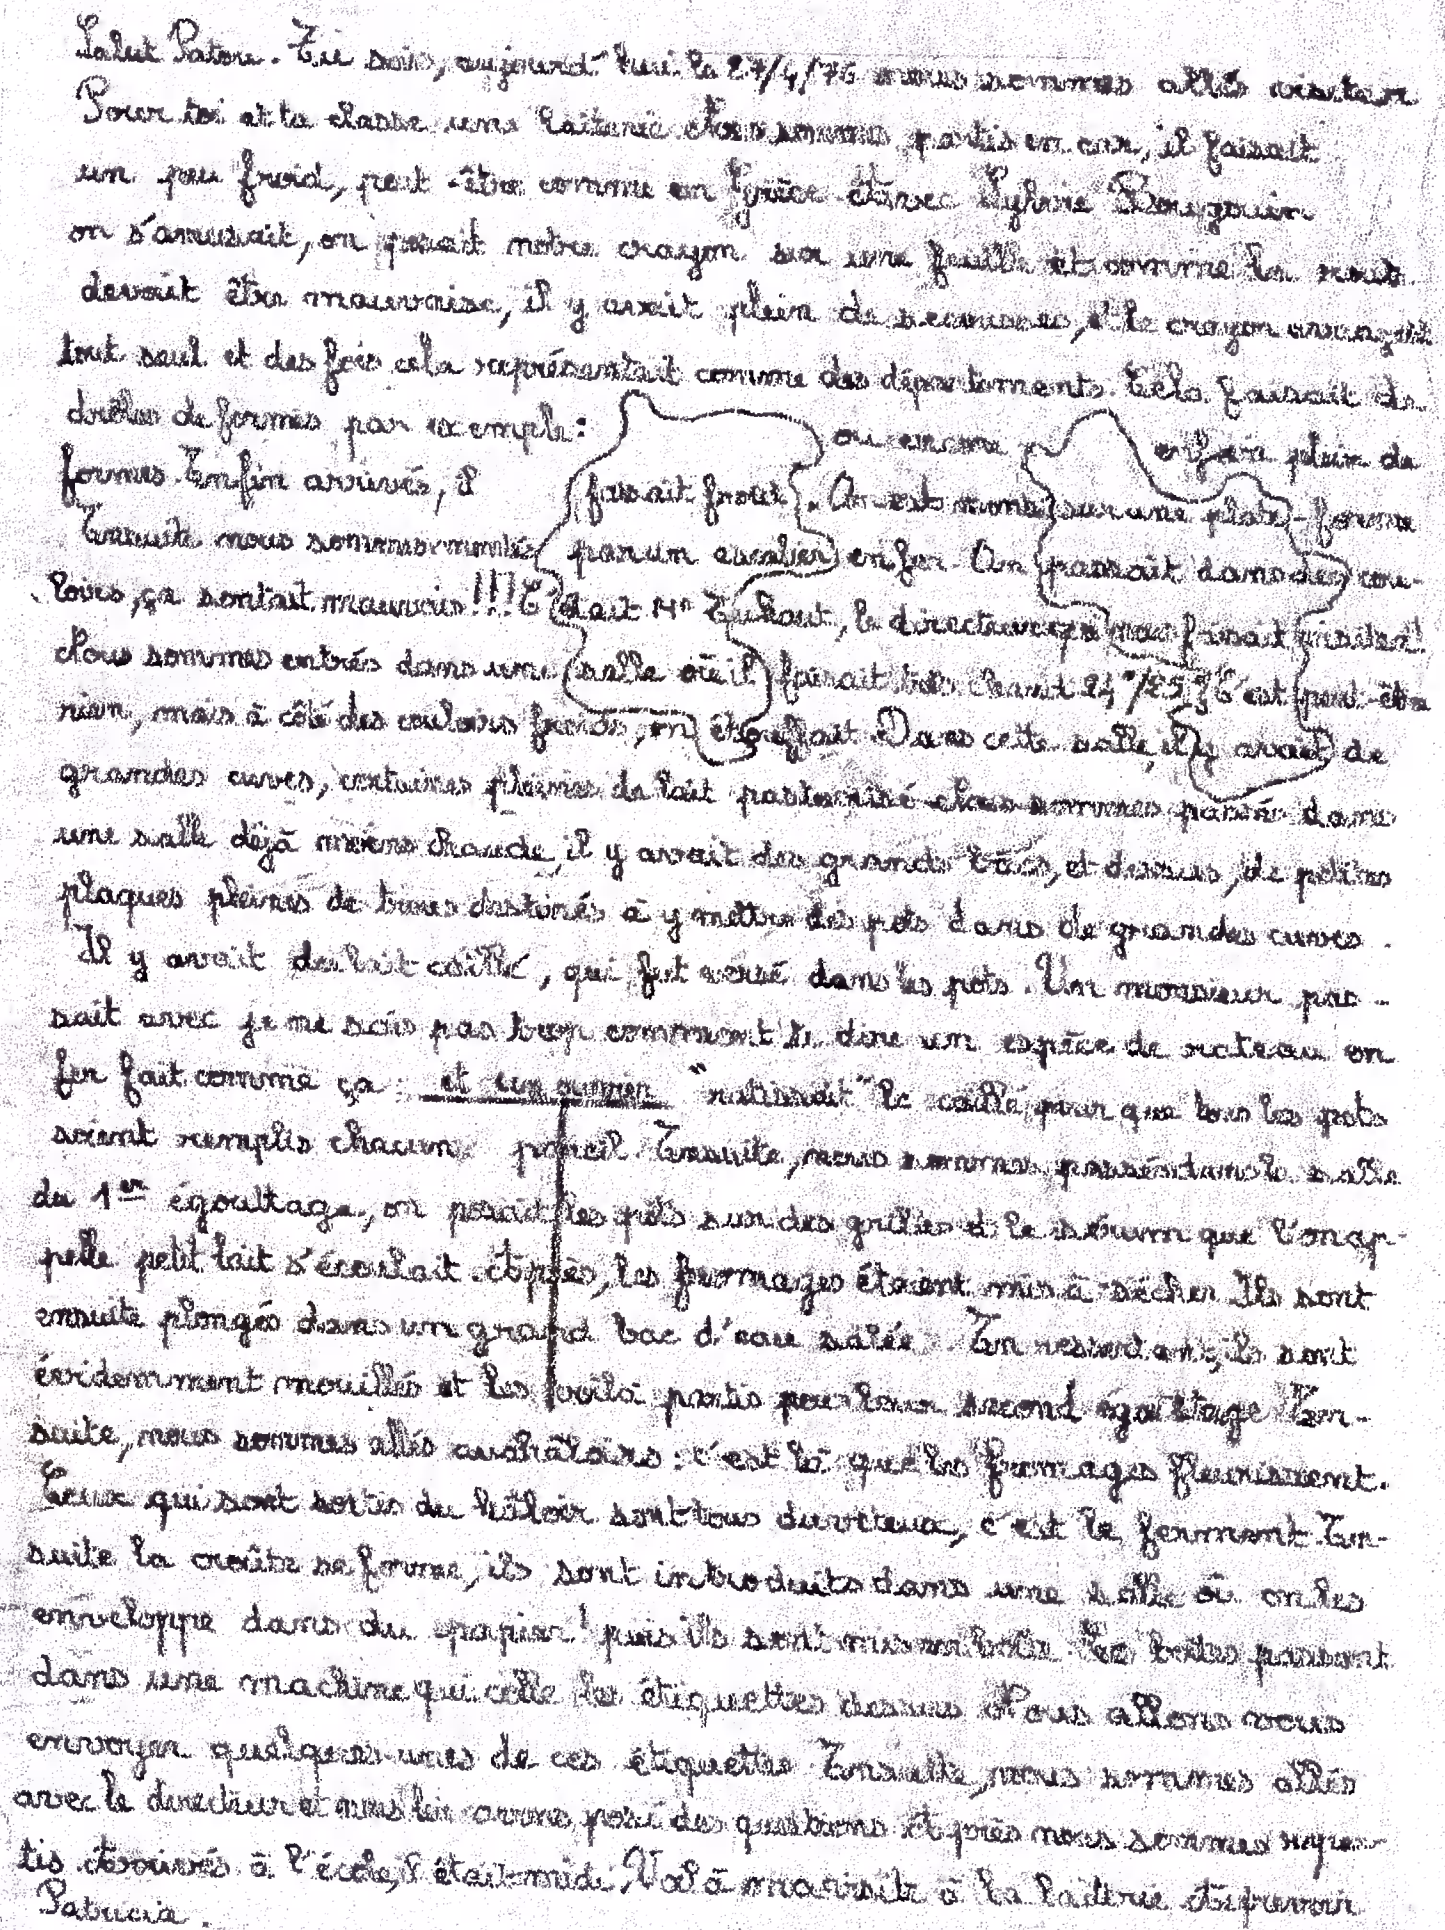 Salut Patou. Tu sais, aujourd'hui le 27/4/76 nous sommes allés visiter
Pour toi et ta classe une laiterie Nous sommes partis en car, il faisait
un peu froid, peut-être comme en Grèce Et avec Sylvie Bougouin
on s'amusait, on posait notre crayon sur une feuille et comme la rout
devait être mauvaise, il y avait plein de secousses, et le crayon avançait
tout seul et des fois cela représentait comme des départements. Cela faisait de
drôles de formes par exemple : ou encore enfin plein de
formes. Enfin arrivés, il faisait froid. On est monté sur une plate-forme
Ensuite nous sommes montés par un escalier en fer. On passait dans des cou-
loirs, ça sentait mauvais !!! C'était Mr, le directeur qui nous faisait visiter!
Nous sommes entrés dans une salle où il faisait très chaud 24°/25° C'est peut-être
rien, mais à côté des couloirs froids, on étouffait. Dans cette salle, il y avait de
grandes cuves, certaines pleines de lait pasteurisé Nous sommes passés dans
une salle déjà moins chaude, il y avait des grands bacs, et dessus, de petites
plaques pleines de trous destinés à y mettre des pots dans de grandes cuves.
Il y avait du lait caillé, qui fut versé dans les pots. Un monsieur pas-
sait avec je ne sais pas trop comment te dire un espèce de rateau en
fer fait comme ça : et un ouvrier "ratissait" le caillé pour que tous les pots
soient remplis chacun pareil. Ensuite, nous sommes passés dans la salle
du 1er égouttage, on posait les pots sur des grilles et le sérum que l'on ap-
pelle petit lait s'écoulait. Après, les fromages étaient mis à sécher. Ils sont
ensuite plongés dans un grand bac d'eau salée. En ressortant, ils sont
évidemment mouillés et les voilà partis pour leur second égouttage En-
suite, nous sommes allés au hâloirs : c'est là que les fromages fleurissent.
Ceux qui sont sortis du hâloir sont tous duveteux, c'est le ferment. En-
suite la croûte se forme, ils sont introduits dans une salle où on les
enveloppe dans du papier puis ils sont mis en boîte. Les boîtes passent
dans une machine qui colle les étiquettes dessus Nous allons vous
envoyer quelques-unes de ces étiquettes Ensuite, nous sommes allés
avec le directeur et nous lui avons posé des questions Et près nous sommes repar-
tis. Arrivés à l'école, il était midi. Voilà ma visite à la laiterie Au revoir
Patricia.